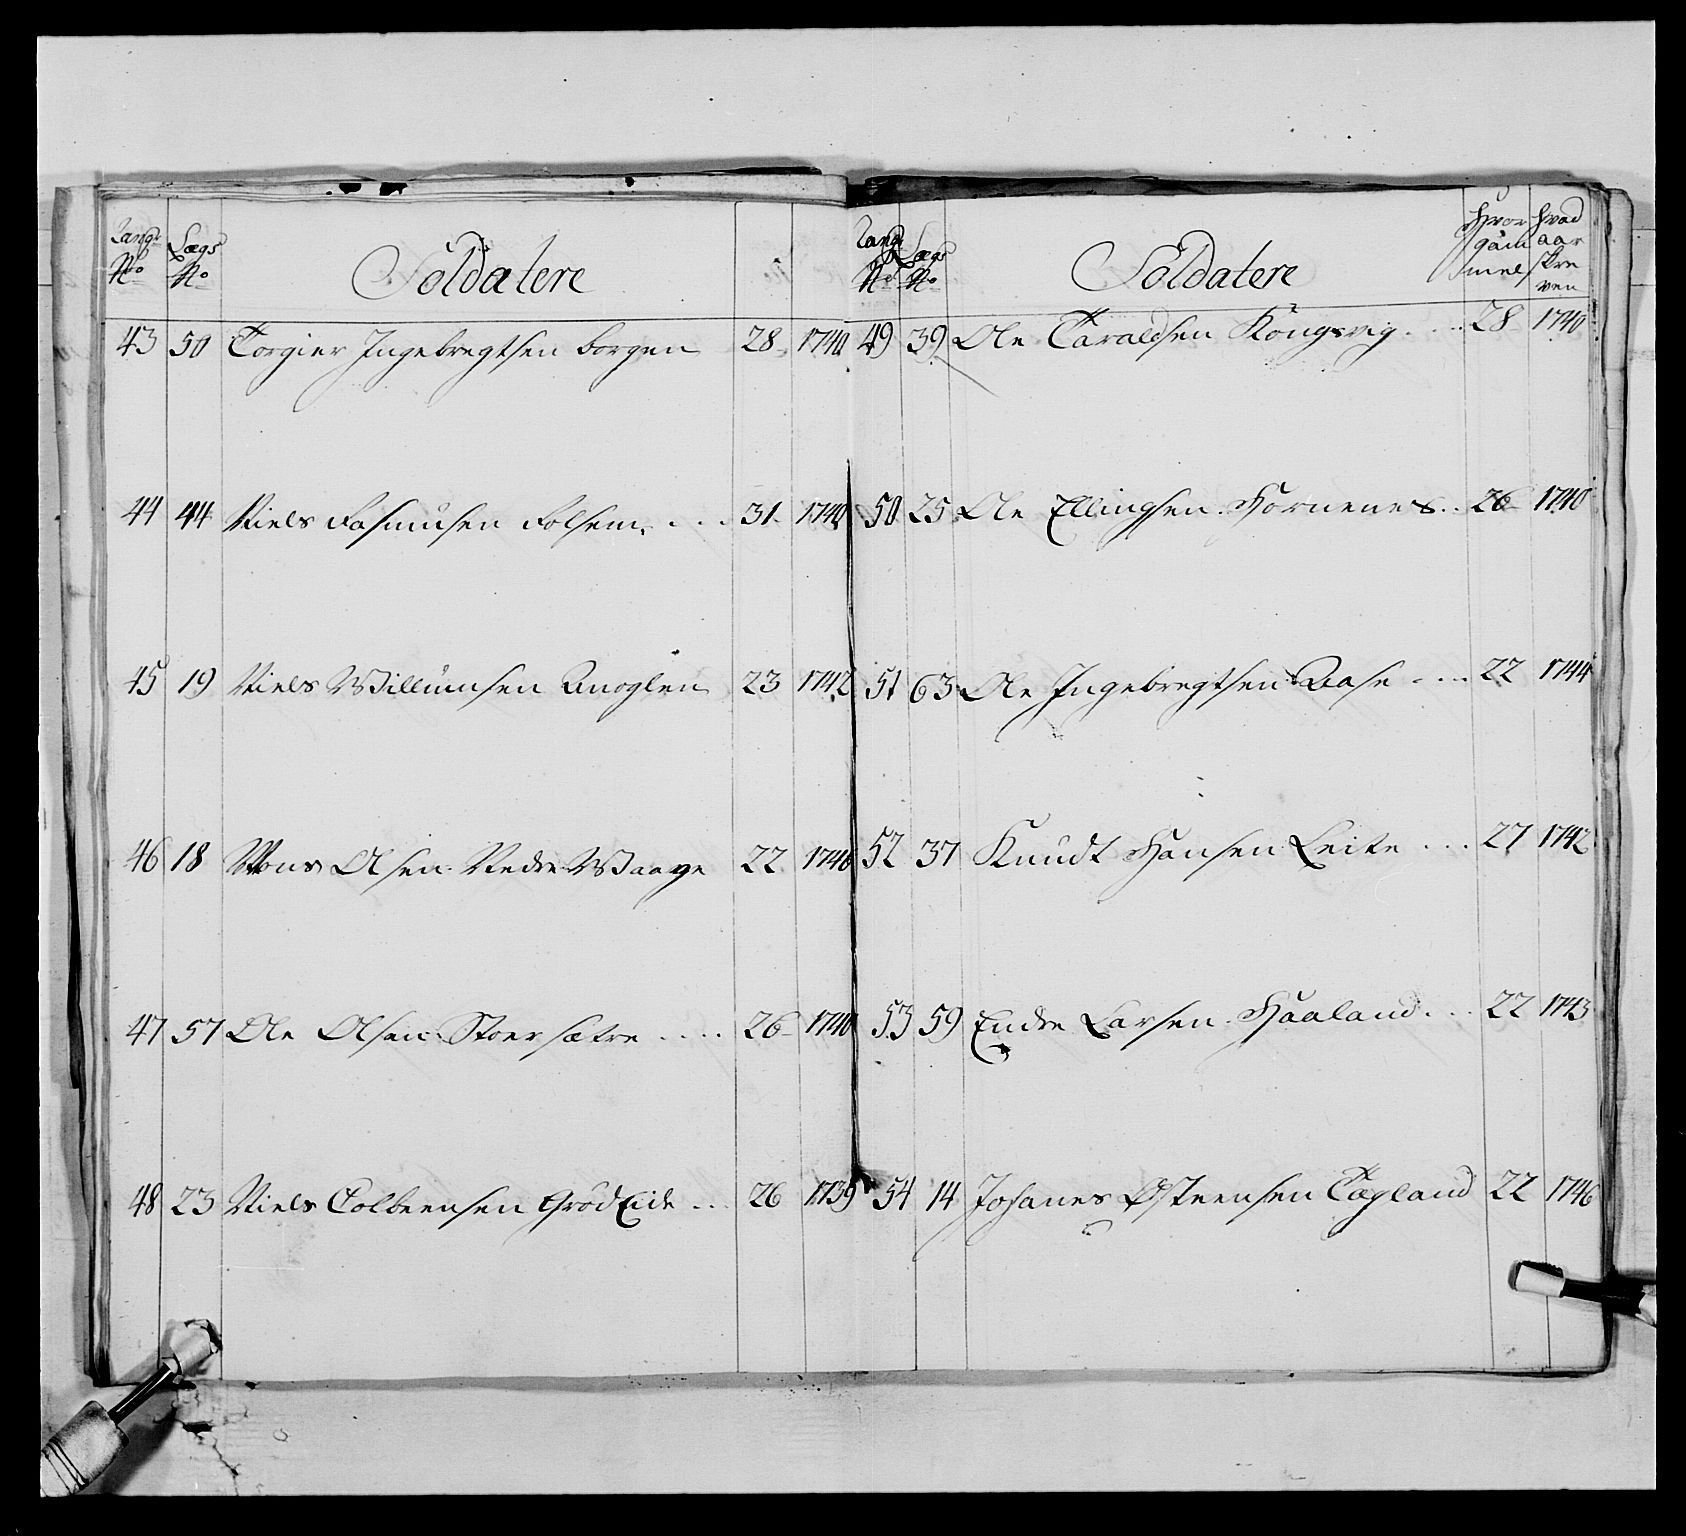 Rang
No
Lægs
No
Soldatere
43 50 Torgier Ingebregtsen borgen 28 1740
44 44 Niels Rasmusen Rolsem 31 1740
45 19 Niels Willumsen 23 1742
46 18 Mons Olsen Nedre Waage 22 1746
47 57 Ole Olsen Stoersætre 26 1740
48 23 Niels Tolbeensen GrødEide 26 1739
Rang
No
Lægs
No
Soldatere
Hvor
gam
mel
hvad
aar
skre
ven
49 39 Ole Taraldsen Kongsvig 28 1740
50 25 Ole Ellingsen Hornenes 26 1740
51 63 Ole Ingebregtsen Aase 22 1744
52 37 Knudt Hansen Leite 27 1742
53 59 Endre Larsen Haaland 22 1743
54 14 Johanes Østeensen Tægland 22 1746